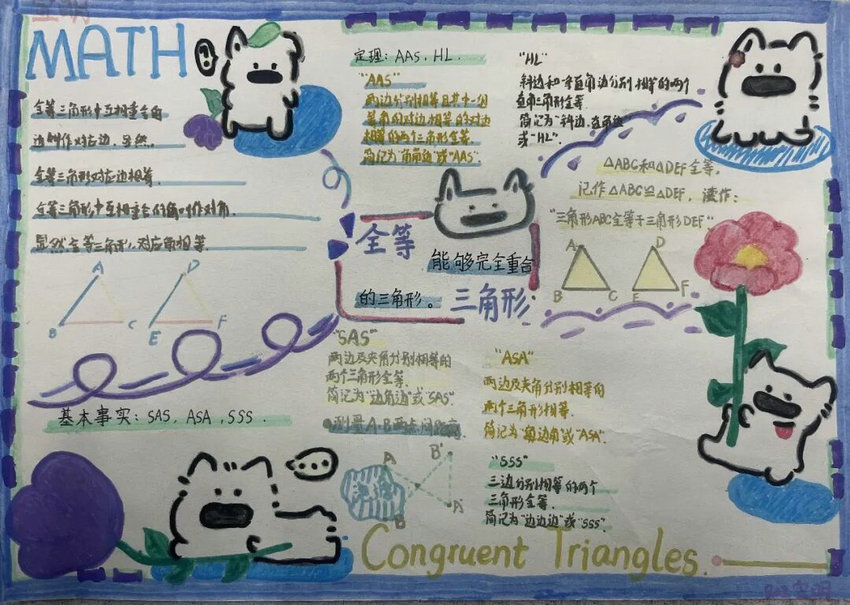 MATH
全等三角形中互相重合的
边叫作对应边，显然，
全等三角形对应边相等．
全等三角形中互相重合的角叫作对角．
显然全等三角形，对应角相等．
A
D
B
C
E
F
基本事实：SAS，ASA，SSS．
定理：AAS，HL．
"AAS"
两边分别相等且其中一组
等角的对边相等的对边
相等的两个三角形全等．
简记为"角角边"或"AAS"．
"HL"
斜边和一条直角边分别相等的两个
直角三角形全等
简记为"斜边、直角边
或"HL"．
△ABC和△DEF全等，
记作△ABC≌△DEF，读作：
"三角形ABC全等于三角形DEF"
A
D
B
C
E
F
全等
能够完全重合
的三角形。
三角形
"SAS"
两边及夹角分别相等的
两个三角形全等．
简记为"边角边"或"SAS"
测量A、B两点间距离
A
B'
B
A'
"ASA"
两边及夹角分别相等的
两个三角形相等．
简记为"角边角"或"ASA"．
"SSS"
三边分别相等的两个
三角形全等．
简记为"边边边"或"SSS"．
Congruent Triangles.